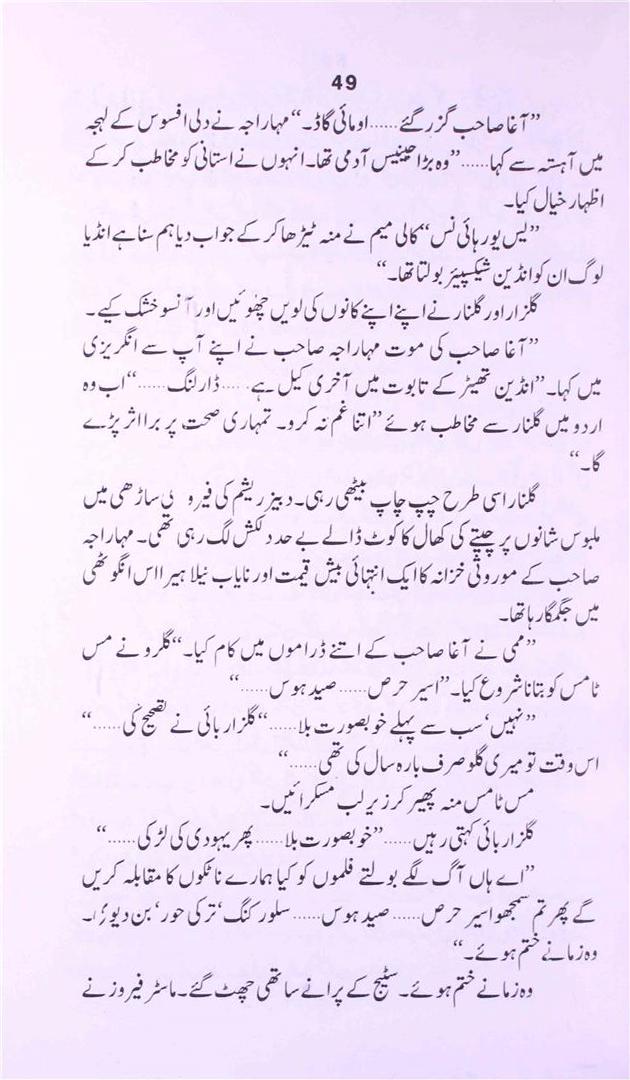 49
”آغا صاحب گزر گئے......او مائی گاڈ۔“ مہاراجہ نے دلی افسوس کے لہجہ
میں آہستہ سے کہا......”وہ بڑا جینیس آدمی تھا۔ انہوں نے استانی کو مخاطب کر کے
اظہار خیال کیا۔
”یس یور ہائی نس“ کالی میم نے منہ ٹیڑھا کر کے جواب دیا ہم سنا ہے انڈیا
لوگ ان کو انڈین شیکسپیئر بولتا تھا۔“
گلزار اور گلنار نے اپنے اپنے کانوں کی لویں چھوئیں اور آنسو خشک کیے۔
”آغا صاحب کی موت مہاراجہ صاحب نے اپنے آپ سے انگریزی
میں کہا۔ ”انڈین تھیٹر کے تابوت میں آخری کیل ہے......ڈارلنگ......“ اب وہ
اردو میں گلنار سے مخاطب ہوئے ”اتنا غم نہ کرو۔ تمہاری صحت پر برا اثر پڑے
گا۔“
گلنار اسی طرح چپ چاپ بیٹھی رہی۔ دبیز ریشم کی ساڑھی میں
ملبوس شانوں پر چیتے کی کھال کا کوٹ ڈالے بے حد دلکش لگ رہی تھی۔ مہاراجہ
صاحب کے موروثی خزانہ کا ایک انتہائی بیش قیمت اور نایاب نیلا ہیرا اس انگوٹھی
میں جگمگا رہا تھا۔
”ممی نے آغا صاحب کے اتنے ڈراموں میں کام کیا۔“ گلرو نے مس
ٹامس کو بتانا شروع کیا۔ ”اسیر حرص......صید ہوس......“
”نہیں‘ سب سے پہلے خوبصورت بلا......“ گلزار بائی نے تصحیح کی......“
اس وقت تو میری گلو صرف بارہ سال کی تھی......“
مس ٹامس منہ پھیر کر زیر لب مسکرائیں۔
گلزار بائی کہتی رہیں......”خوبصورت بلا......پھر یہودی کی لڑکی......“
”اے ہاں آگ لگے بولتے فلموں کو کیا ہمارے ناٹکوں کا مقابلہ کریں
گے پھر تم سمجھو اسیر حرص......صید ہوس......سلور کنگ‘ ترکی حور‘ بن دیوی۔
وہ زمانے ختم ہوئے۔“
وہ زمانے ختم ہوئے۔ سٹیج کے پرانے ساتھی چھٹ گئے۔ ماسٹر فیروز نے